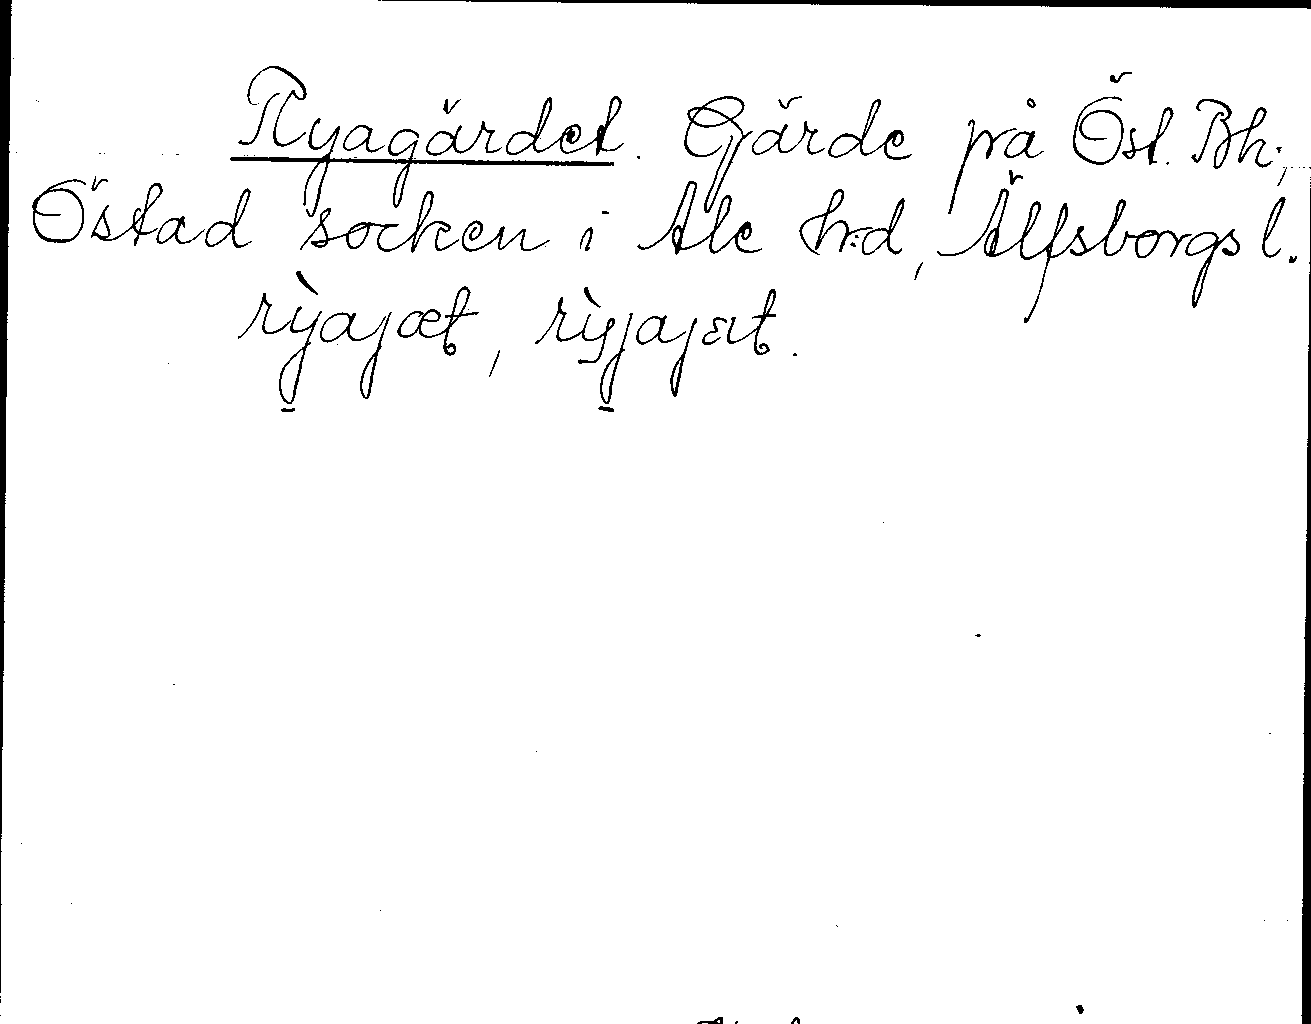 Ryagärdet. Gärde på Öst. Bh.,
Östad socken i Ale h:d, Älfsborgs l.
rỳajæt, rỳjajært.